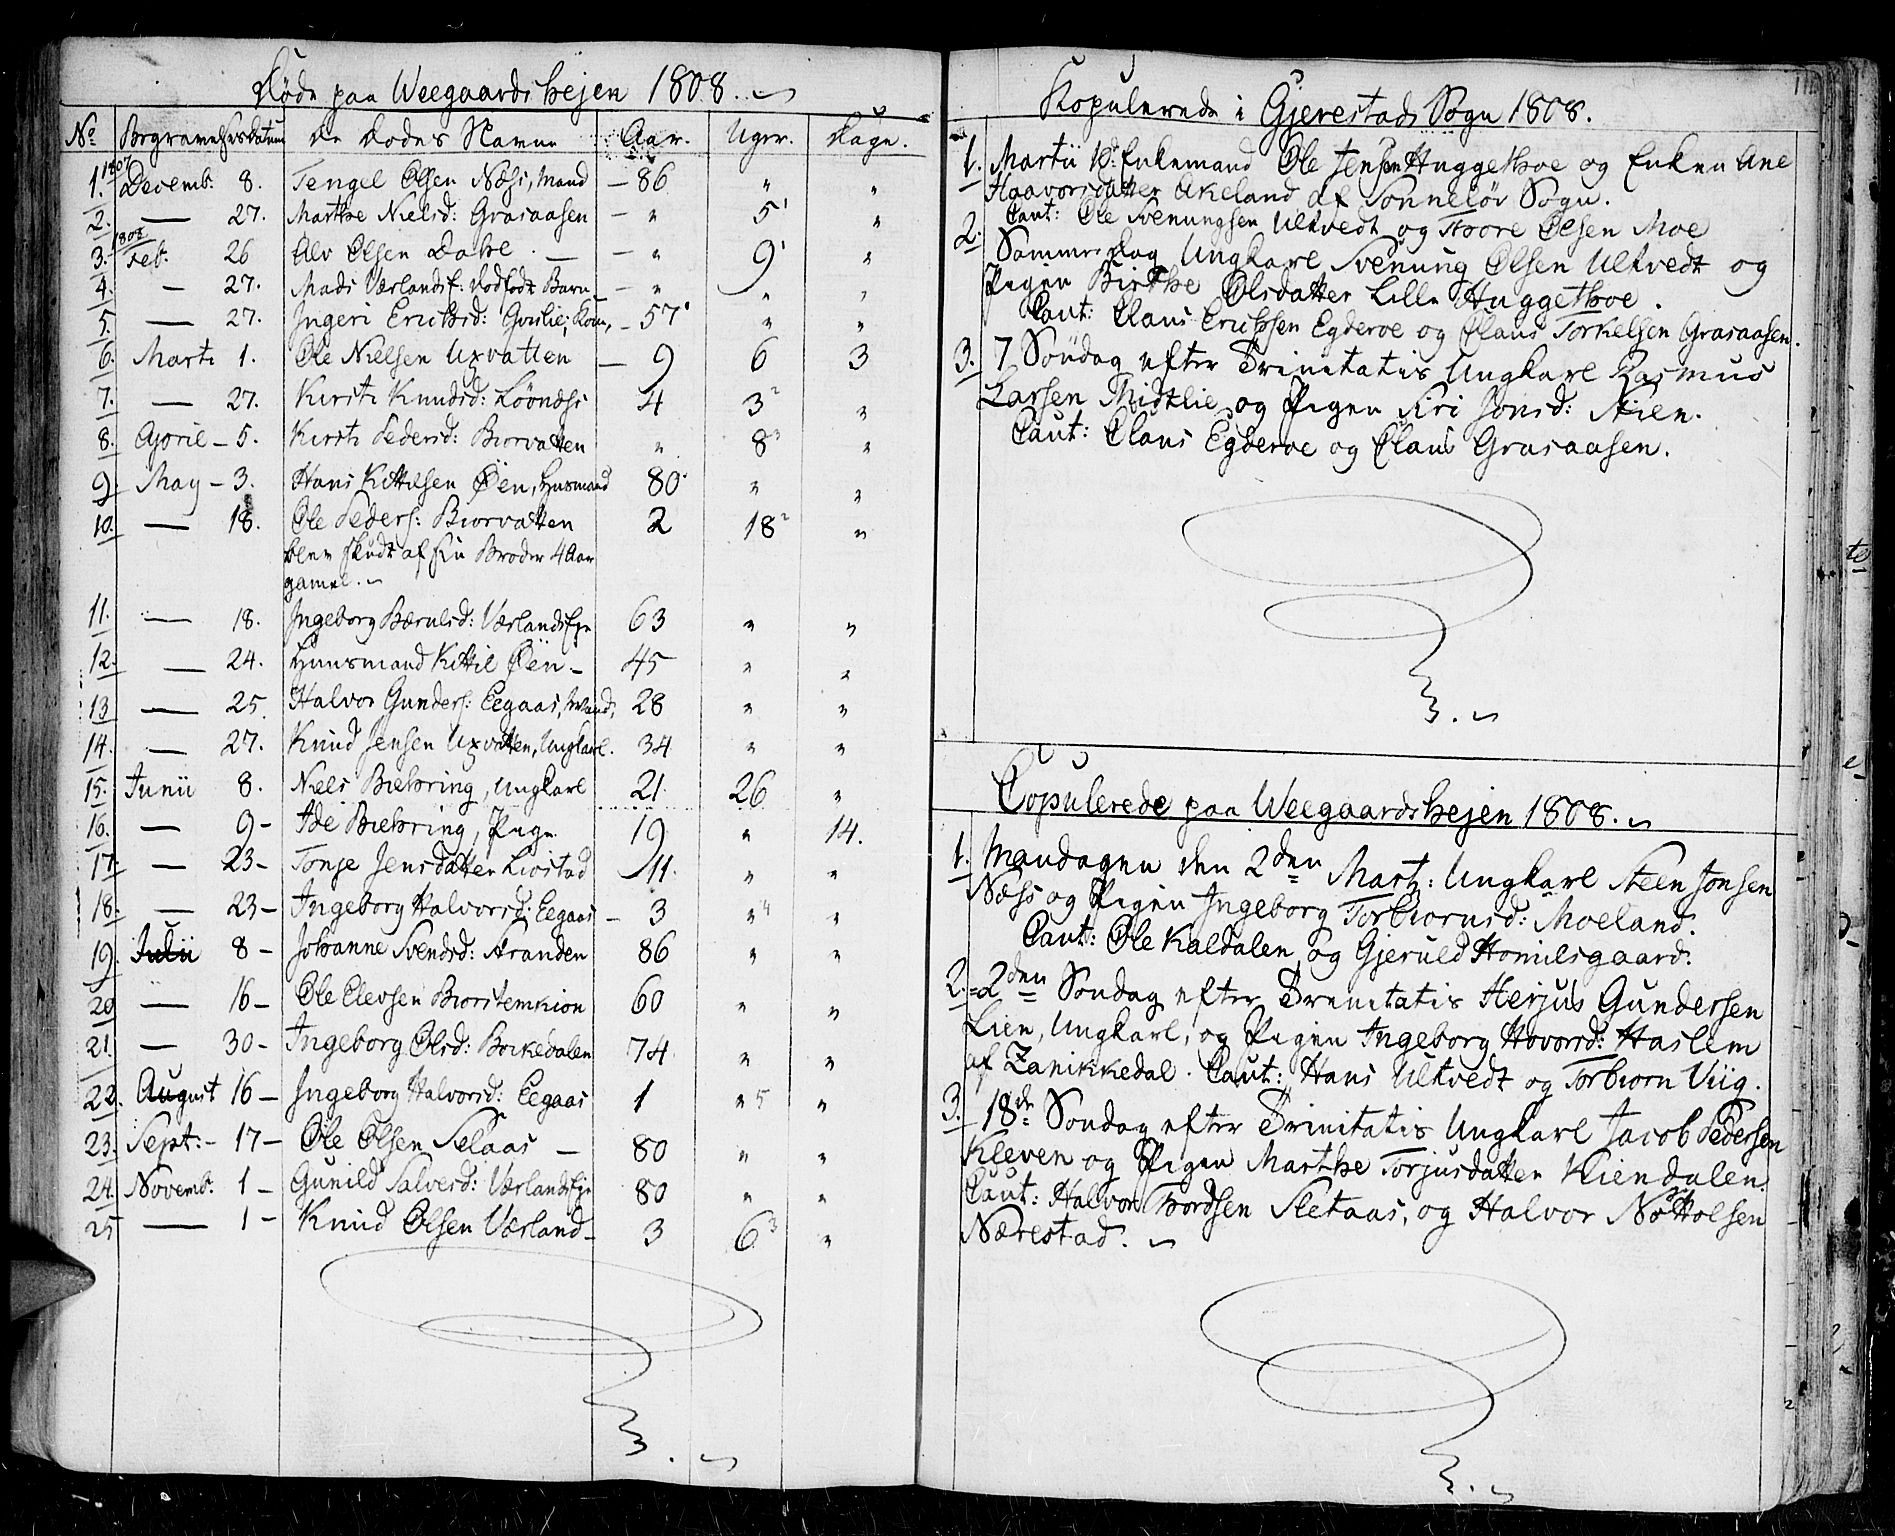 Døde paa Weegaardshejen 1808.
No Begravelsesdatum De Dødes Navne Aar. Uger. Dage.
1. 1807 Decemb. 8. Tengel Olsen Næss, Mand — 86 " "
2. — 27. Marthe Nielsd: Grasaasen — " 5 "
3. 1808 Feb. 26 Alv Olsen Dahe — " 9 "
4. — 27. Mads Værlands f. dødfødt Barn — " " "
5. — 27. Ingeri Erichsd: Kone, — 57 " "
6. Marti 1. Ole Nielsen Uxvatten — 9 6 3
7. — 27. Kirsti Knudsd: Löonæss 4 3 "
8. April — 5. Kirsti Pedersd: Biorvatten " 8 "
9. May — 3. Hans Kittilsen Øen, Husmand 80 " "
10. — 18. Ole Peders: Biorvatten 2 18 "
blev skudt af sin Broder 4 Aar
gamel.
11. — 18. Ingeborg Bærulsd: Værlands Eje 63 " "
12. — 24. Huusmand Kittil Øen — 45 " "
13 — 25. Halvor Gunders: Eegaas, Mand, 28 " "
14. — 27. Knud Jensen Uxvatten, Ungkarl. 34 " "
15. Junii 8. Niels Biehring, Ungkarl 21 26 "
16. — 9 - Ide Biehring, Pige 19 " 14.
17. — 23 - Tonje Jensdatter Liostad 11. " "
18. — 23 - Ingeborg Halvorsd: Eegaas — 3 " 4 "
19. Julii 8 - Johanne Svendsd: Stranden 86 " "
20 — 16 - Ole Elevsen Biorstemkion 60 " "
21. — 30 - Ingeborg Olsd: Borkedalen 74 " "
22. August 16 - Ingeborg Halvorsd: Eegaas 1 " 5 "
23. Sept: - 17 - Ole Olsen Selaas — 80 " "
24. Novemb. 1 - Gunild Salvesd: Værlands Eje 80 " "
25 — 1 - Knud Olsen Værland - 3 6 3 "
Kopulerede i Gjerestads Sogn 1808.
1. Martii Enkemand Ole Jensen Huggethoe og Enken Ane
Haavorsdatter Akeland af Sonneløv Sogn.
Caut: Ole Svenungsen Ultvedt og Thore Olsen Moe
2. Sommersdag Ungkarl Svenung Olsen Ulkvedt og
Pigen Birthe Olsdatter Lille Huggethoe.
Caut: Claus Erichsen Egderoe og Claus Torkelsen Grasaasen.
3. 7 Søndag efter Trinitatis Ungkarl Rasmus
Larsen Midtlie og Pigen Siri Jonsd: Stien.
Caut: Claus Egderoe og Claus Grasaasen.
Copulerede paa Weegaardshejen 1808.
1. Mandagen den 2den Martz: Ungkarl Steen Jonsen
Næss og Pigen Ingeborg Torbiornsd: Moeland.
Caut: Ole Kaldalen og Gjeruld Homilsgaard.
2. 2den Søndag efter Trinitatis Herjus Gundersen
Lien, Ungkarl, og Pigen Ingeborg Hovorsd: Haslem
af Zanikkedal. Caut: Hans Ulkvedt og Torbiorn Viig.
3. 18de Søndag efter Trinitatis Ungkarl Jacob Pedersen
Kleven og Pigen Marthe Torjusdatter Kiendalen.
Caut: Halvor Thordsen Sletaas, og Halvor Nottolsen
Nærestad.